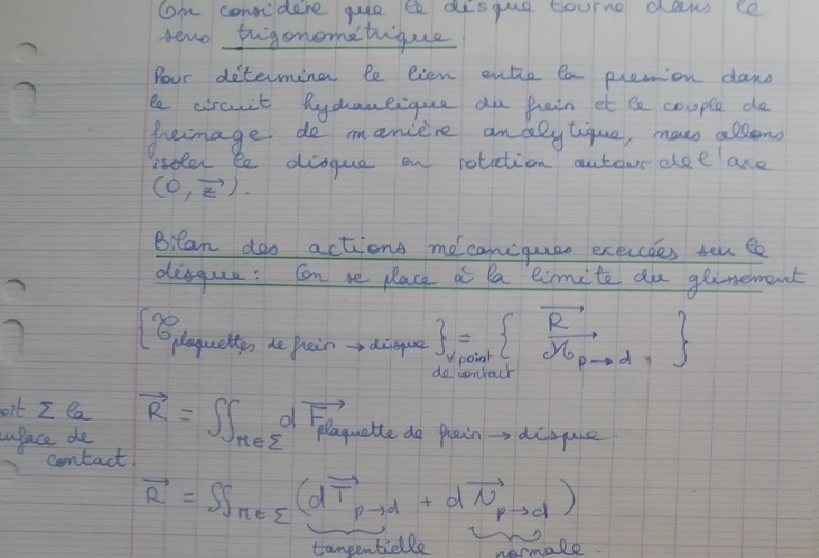 On considère que le disque tourne dans le
sens trigonométrique.
Pour déterminer le lien entre la pression dans
le circuit hydraulique du frein et le couple de
freinage de manière analytique, nous allons
isoler le disque en rotation autour de l'axe
(O, z⃗).
Bilan des actions mécaniques exercées sur le
disque : On se place à la limite du glissement
{𝒯 plaquettes de frein → disque} ∀ point de contact = { R⃗ / ℳ⃗ p→d , }
Soit Σ la
surface de
contact.
R⃗ = ∬_{M∈Σ} dF⃗ plaquette de frein → disque.
R⃗ = ∬_{M∈Σ} (dT⃗ p→d + dN⃗ p→d)
tangentielle normale.